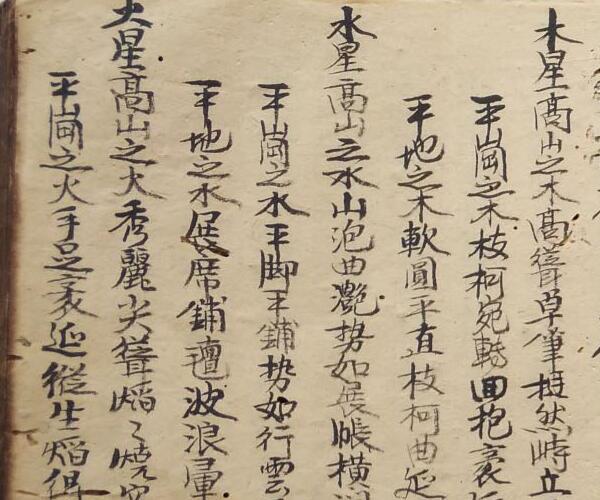 木星高山之木高聳卓筆挺然時立
平崗之木枝柯宛轉回抱
平地之木軟圓平直枝柯曲延
水星高山之水山泡曲灔势如展帳横
平崗之水平脚平鋪势如行雲
平地之水展席鋪氊波浪
火星高山之火秀麗尖聳焰々燒空
平崗之火手足延縱生焰